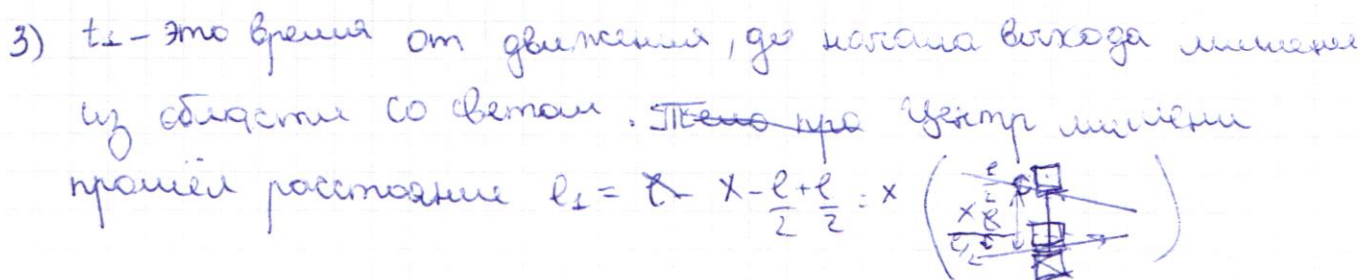 3) t₁ - это время от движения, до начала выхода мишени
из области со светом. Тело про Центр мишени
прошёл расстояние l₁ = x - l/2 + l/2 = x